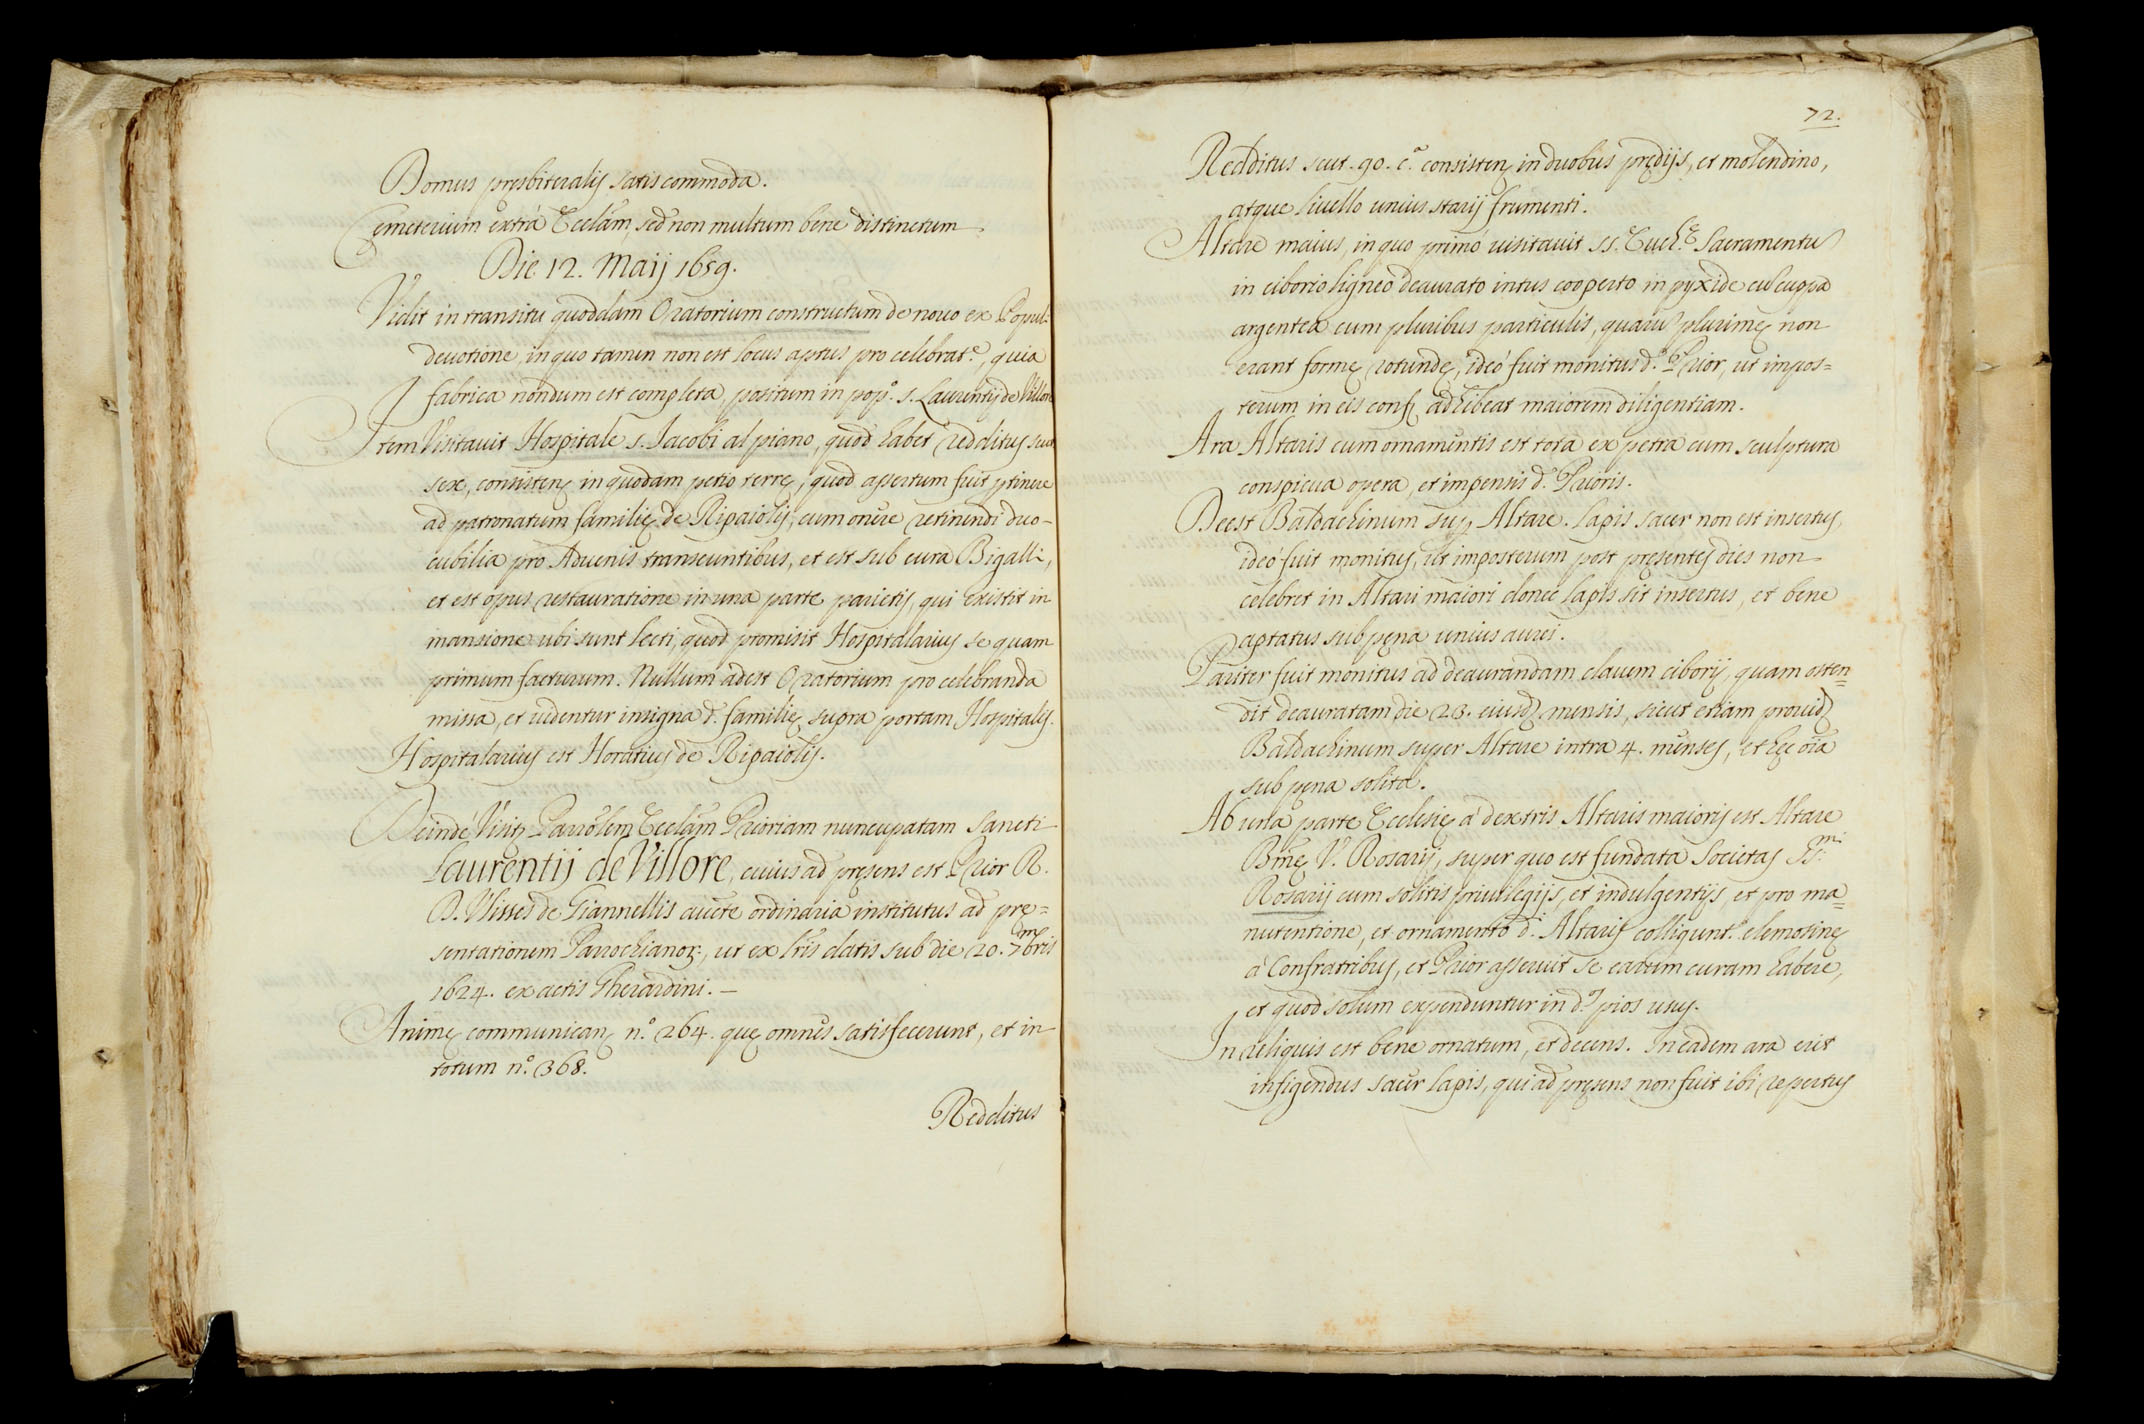 Domus presbiteralis satis commoda.
Cemeterium extrà Ecclam, sed non multum bene distinctum
Die 12. Maij 1659.
Vidit in transitu quoddam Oratorium constructum de nouo ex Popul:
deuotione, in quo tamen non est locus aptus pro celebrat.e, quia
fabrica nondum est completa, positum in pop.o s. Laurentij de Villore
Item Visitauit Hospitale s. Jacobi al piano, quod habet redditus scut
sex, consisten in quodam petio terrę, quod assertum fuit ptinere
ad patronatum familię de Ripaiolis, cum onere retinendi duo
cubilia pro Aduenis transeuntibus, et est sub cura Bigalli,
et est opus restauratione in una parte parietis, qui existit in
mansione ubi sunt lecti, quod promisit Hospitalarius se quam
primum facturum. Nullum adest Oratorium pro celebranda
missa, et uidentur insigna d. familię supra portam Hospitalis.
Hospitalarius est Horatius de Ripaiolis.
Deindè Visit Parrolem Ecclam Prioriam nuncupatam Sancti
Laurentij de Villore, cuius ad pręsens est Prior R.
D. Ulisses de Giannellis aucte ordinaria institutus ad prę=
sentationem Parrochianor, ut ex lris datis sub die 20. 7mbris
1624. ex actis Gherardini. –
Animę communican n.o 264. quę omnes satisfecerunt, et in
totum n.o 368.
Redditus
72.
Redditus scut. 90. c.a consisten in duobus prędijs, et molendino,
atque liuello unius starij frumenti.
Altare maius, in quo primò uisitauit ss. Euch.ę Sacramentu
in ciborio ligneo deaurato intus cooperto in pyxide cu cuppa
argentea cum pluribus particulis, quaru plurimę non
erant formę rotundę, ideò fuit monitus d.s Prior, ut impos=
terum in eis conf adhibeat maiorem diligentiam.
Ara Altaris cum ornamentis est tota ex petra cum sculptura
conspicua opera, et impensis d. Prioris.
Deest Baldachinum sup Altare. Lapis sacer non est insertus,
ideò fuit monitus, ut imposterum post pręsentes dies non
celebret in Altari maiori donec lapis sit insertus, et bene
aptatus sub pęna unius aurei.
Pariter fuit monitus ad deaurandam clauem ciborij, quam osten=
dit deauratam die 23. eiusd mensis, sicut etiam prouid
Baldachinum super Altare intra 4. menses, et hęc oia
sub pena solita.
Ab una parte Ecclesię à dextris Altaris maioris est Altare
Bmę V. Rosarij, super quo est fundata Societas SS.mi
Rosarij cum solitis priuilegijs, et indulgentijs, et pro ma=
nutentione, et ornamento d.i Altaris colligunt.r elemosinę
à Confratribus, et Prior asseruit se earum curam habere,
et quod solum expenduntur in d. pios usus.
In reliquis est bene ornatum, et decens. In eadem ara erit
infigendus sacer lapis, qui ad pręsens non fuit ibi repertus